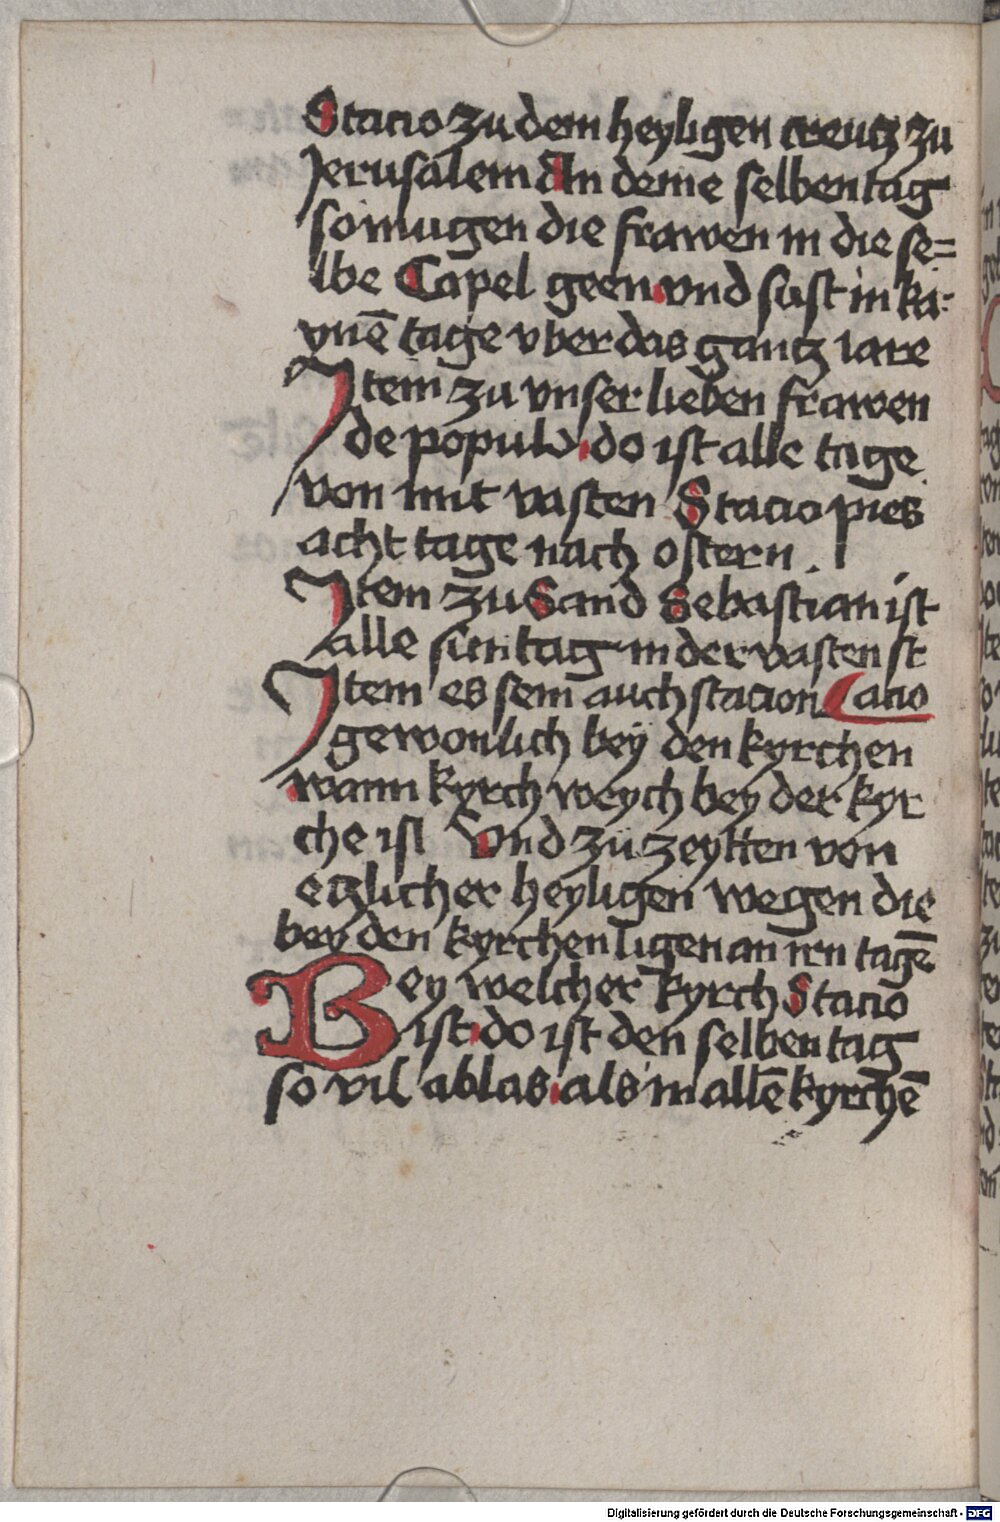 Stacio zu dem heyligen creutz zu
Jerusalem An deme selben tag
so mugen die frawen in die se=
lbe Capel geen vnd sust in ka-
ynē tage vber das gantz iare
Jtem zu vnser lieben frawen
de populo do ist alle tage
von mit vasten Stacio pies
acht tage nach ostern .
Jtem zu Sand Sebastian ist
alle suntag in der vasten st
Jtem es sein auch stacion acio
gewonlich bey den kyrchen
wann kyrch weych bey der kyr
che ist Vnd zu zeytten von
etzlicher heyligen wegen die
bey den kyrchen ligen an irn tagē
Bey welcher kyrch Stacio
ist do ist den selben tag
so vil ablas als in allē kyrchē
Digitalisierung gefördert durch die Deutsche Forschungsgemeinschaft - DFG